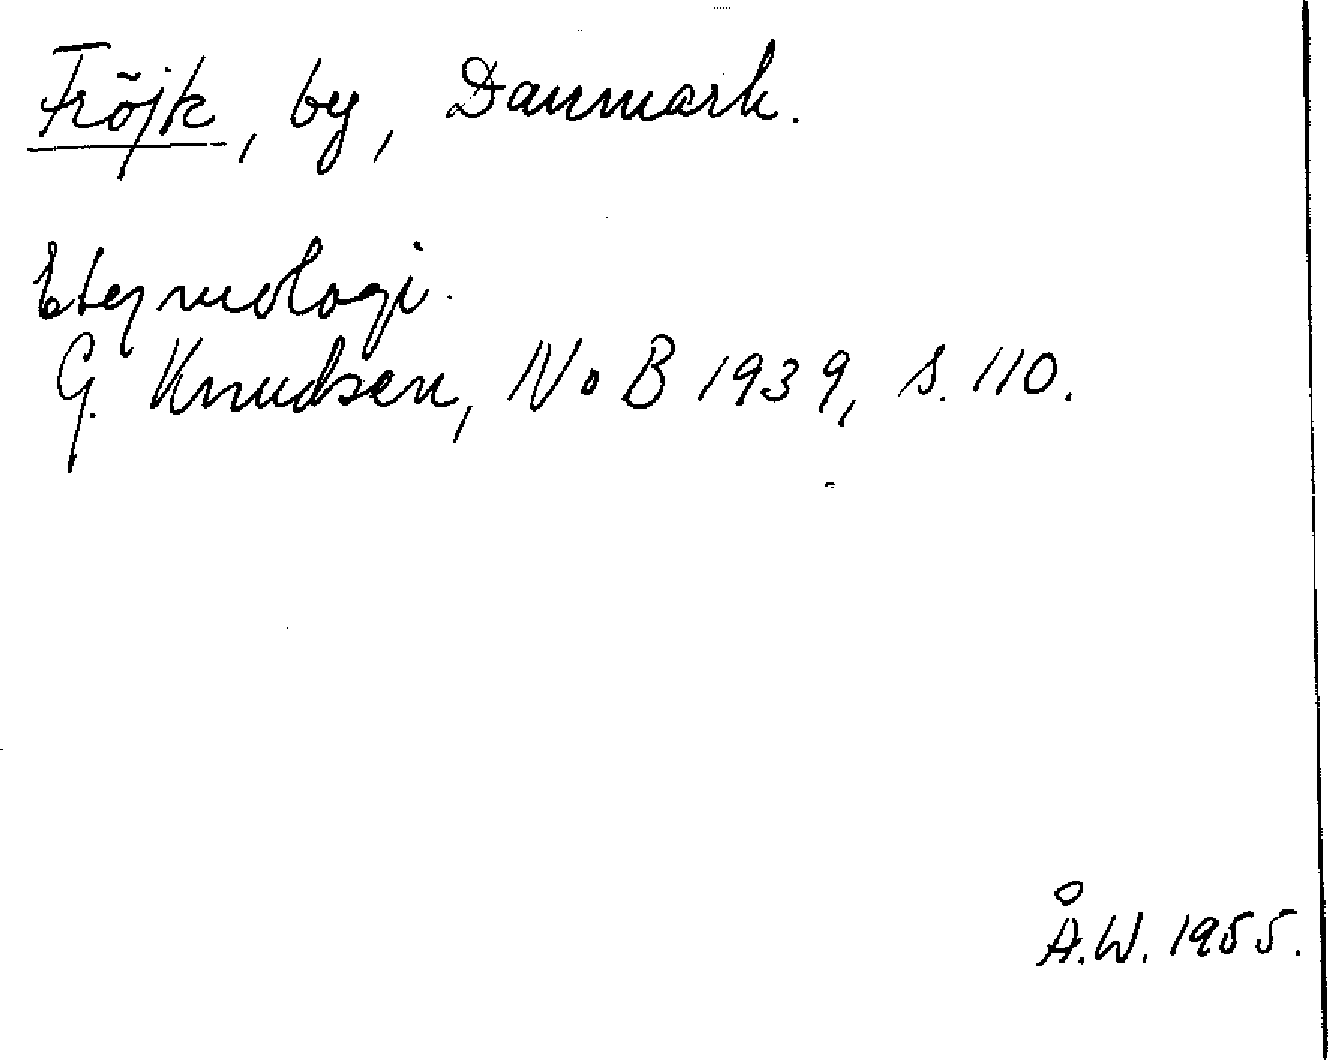 Fröjk, by, Danmark.
Etymologi.
G. Knudsen, NoB 1939, s. 110.
Å.W. 1955.